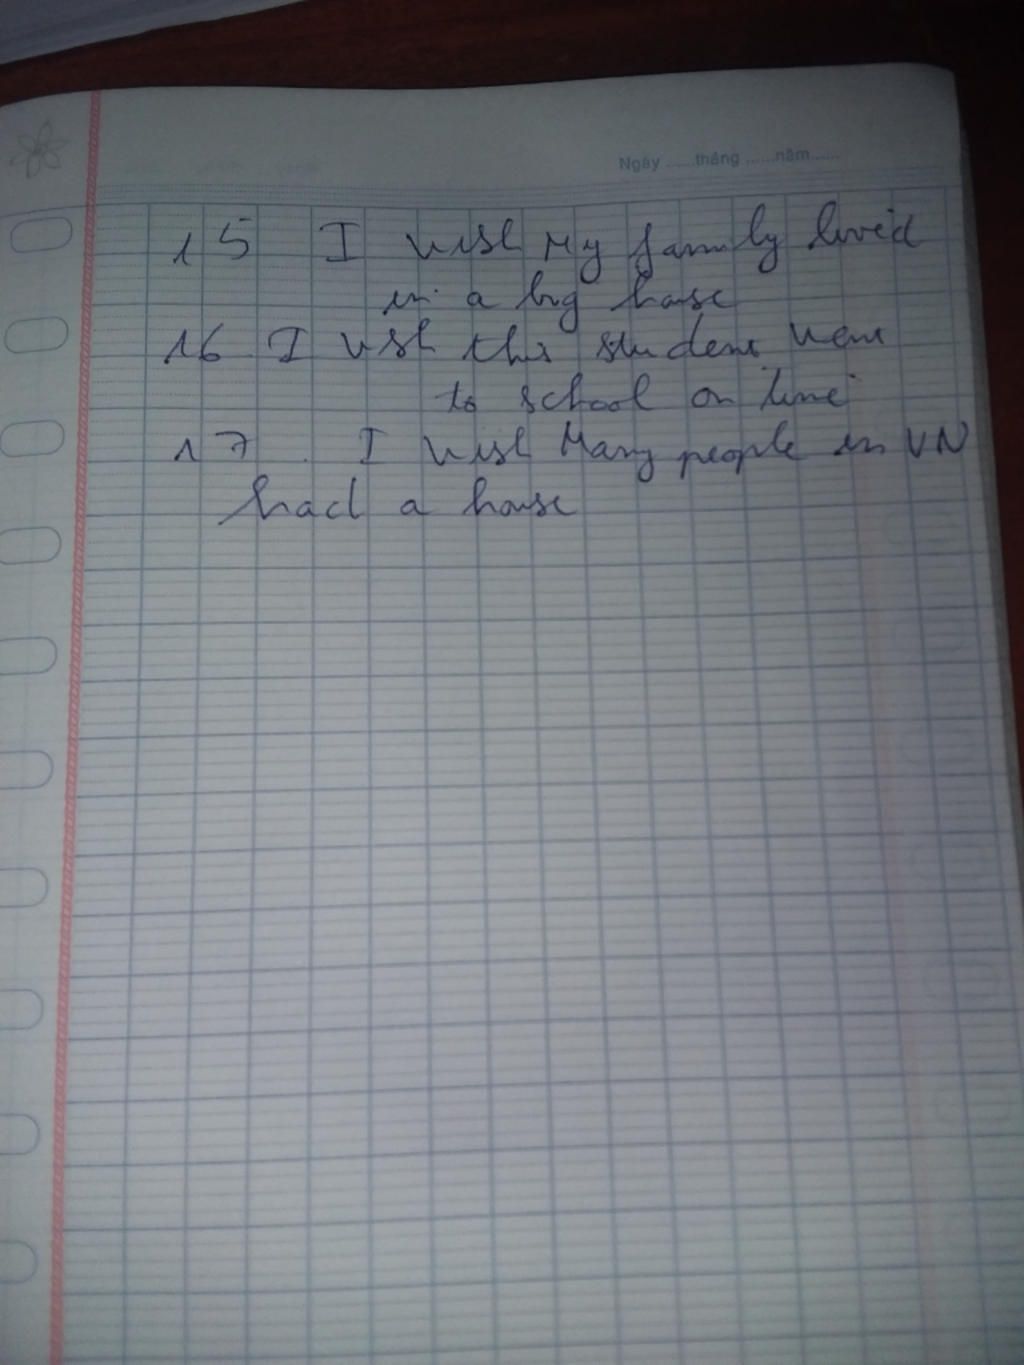 Ngày ......tháng ......năm......
15 I wish my family lived
in a big house
16 I wish the students were
to school on time
17. I wish Many people in VN
had a house